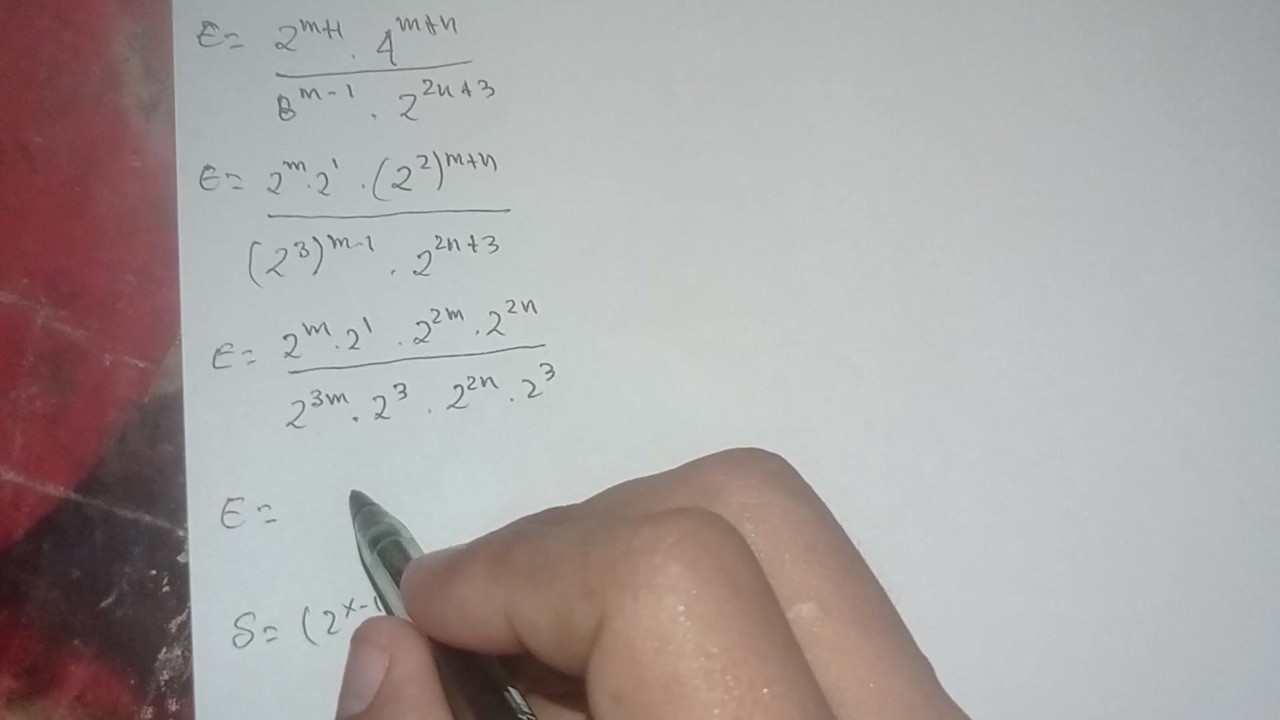 E = 2^{m+1} · 4^{m+n} / 8^{m-1} · 2^{2n+3}
E = 2^m · 2^1 · (2^2)^{m+n} / (2^3)^{m-1} · 2^{2n+3}
E = 2^m · 2^1 · 2^{2m} · 2^{2n} / 2^{3m} · 2^3 · 2^{2n} · 2^3
E =
S = (2^{x-